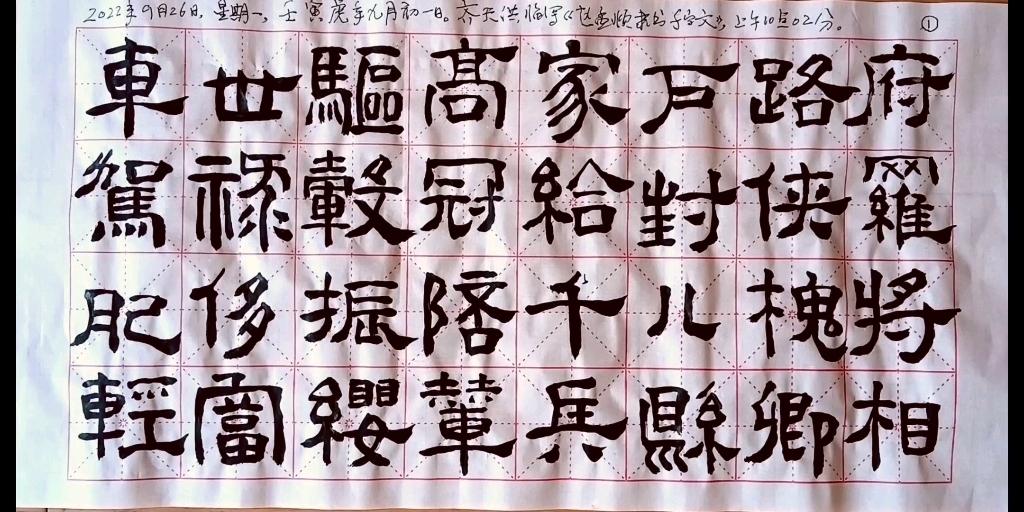 2022年9月26日,星期一,壬寅虎年九月初一日。齐天洪临写《赵孟頫隶书千字文》,上午10点02分。 ①
府羅將相
路俠槐卿
戶封八縣
家給千兵
高冠陪輦
驅轂振纓
世祿侈富
車駕肥輕